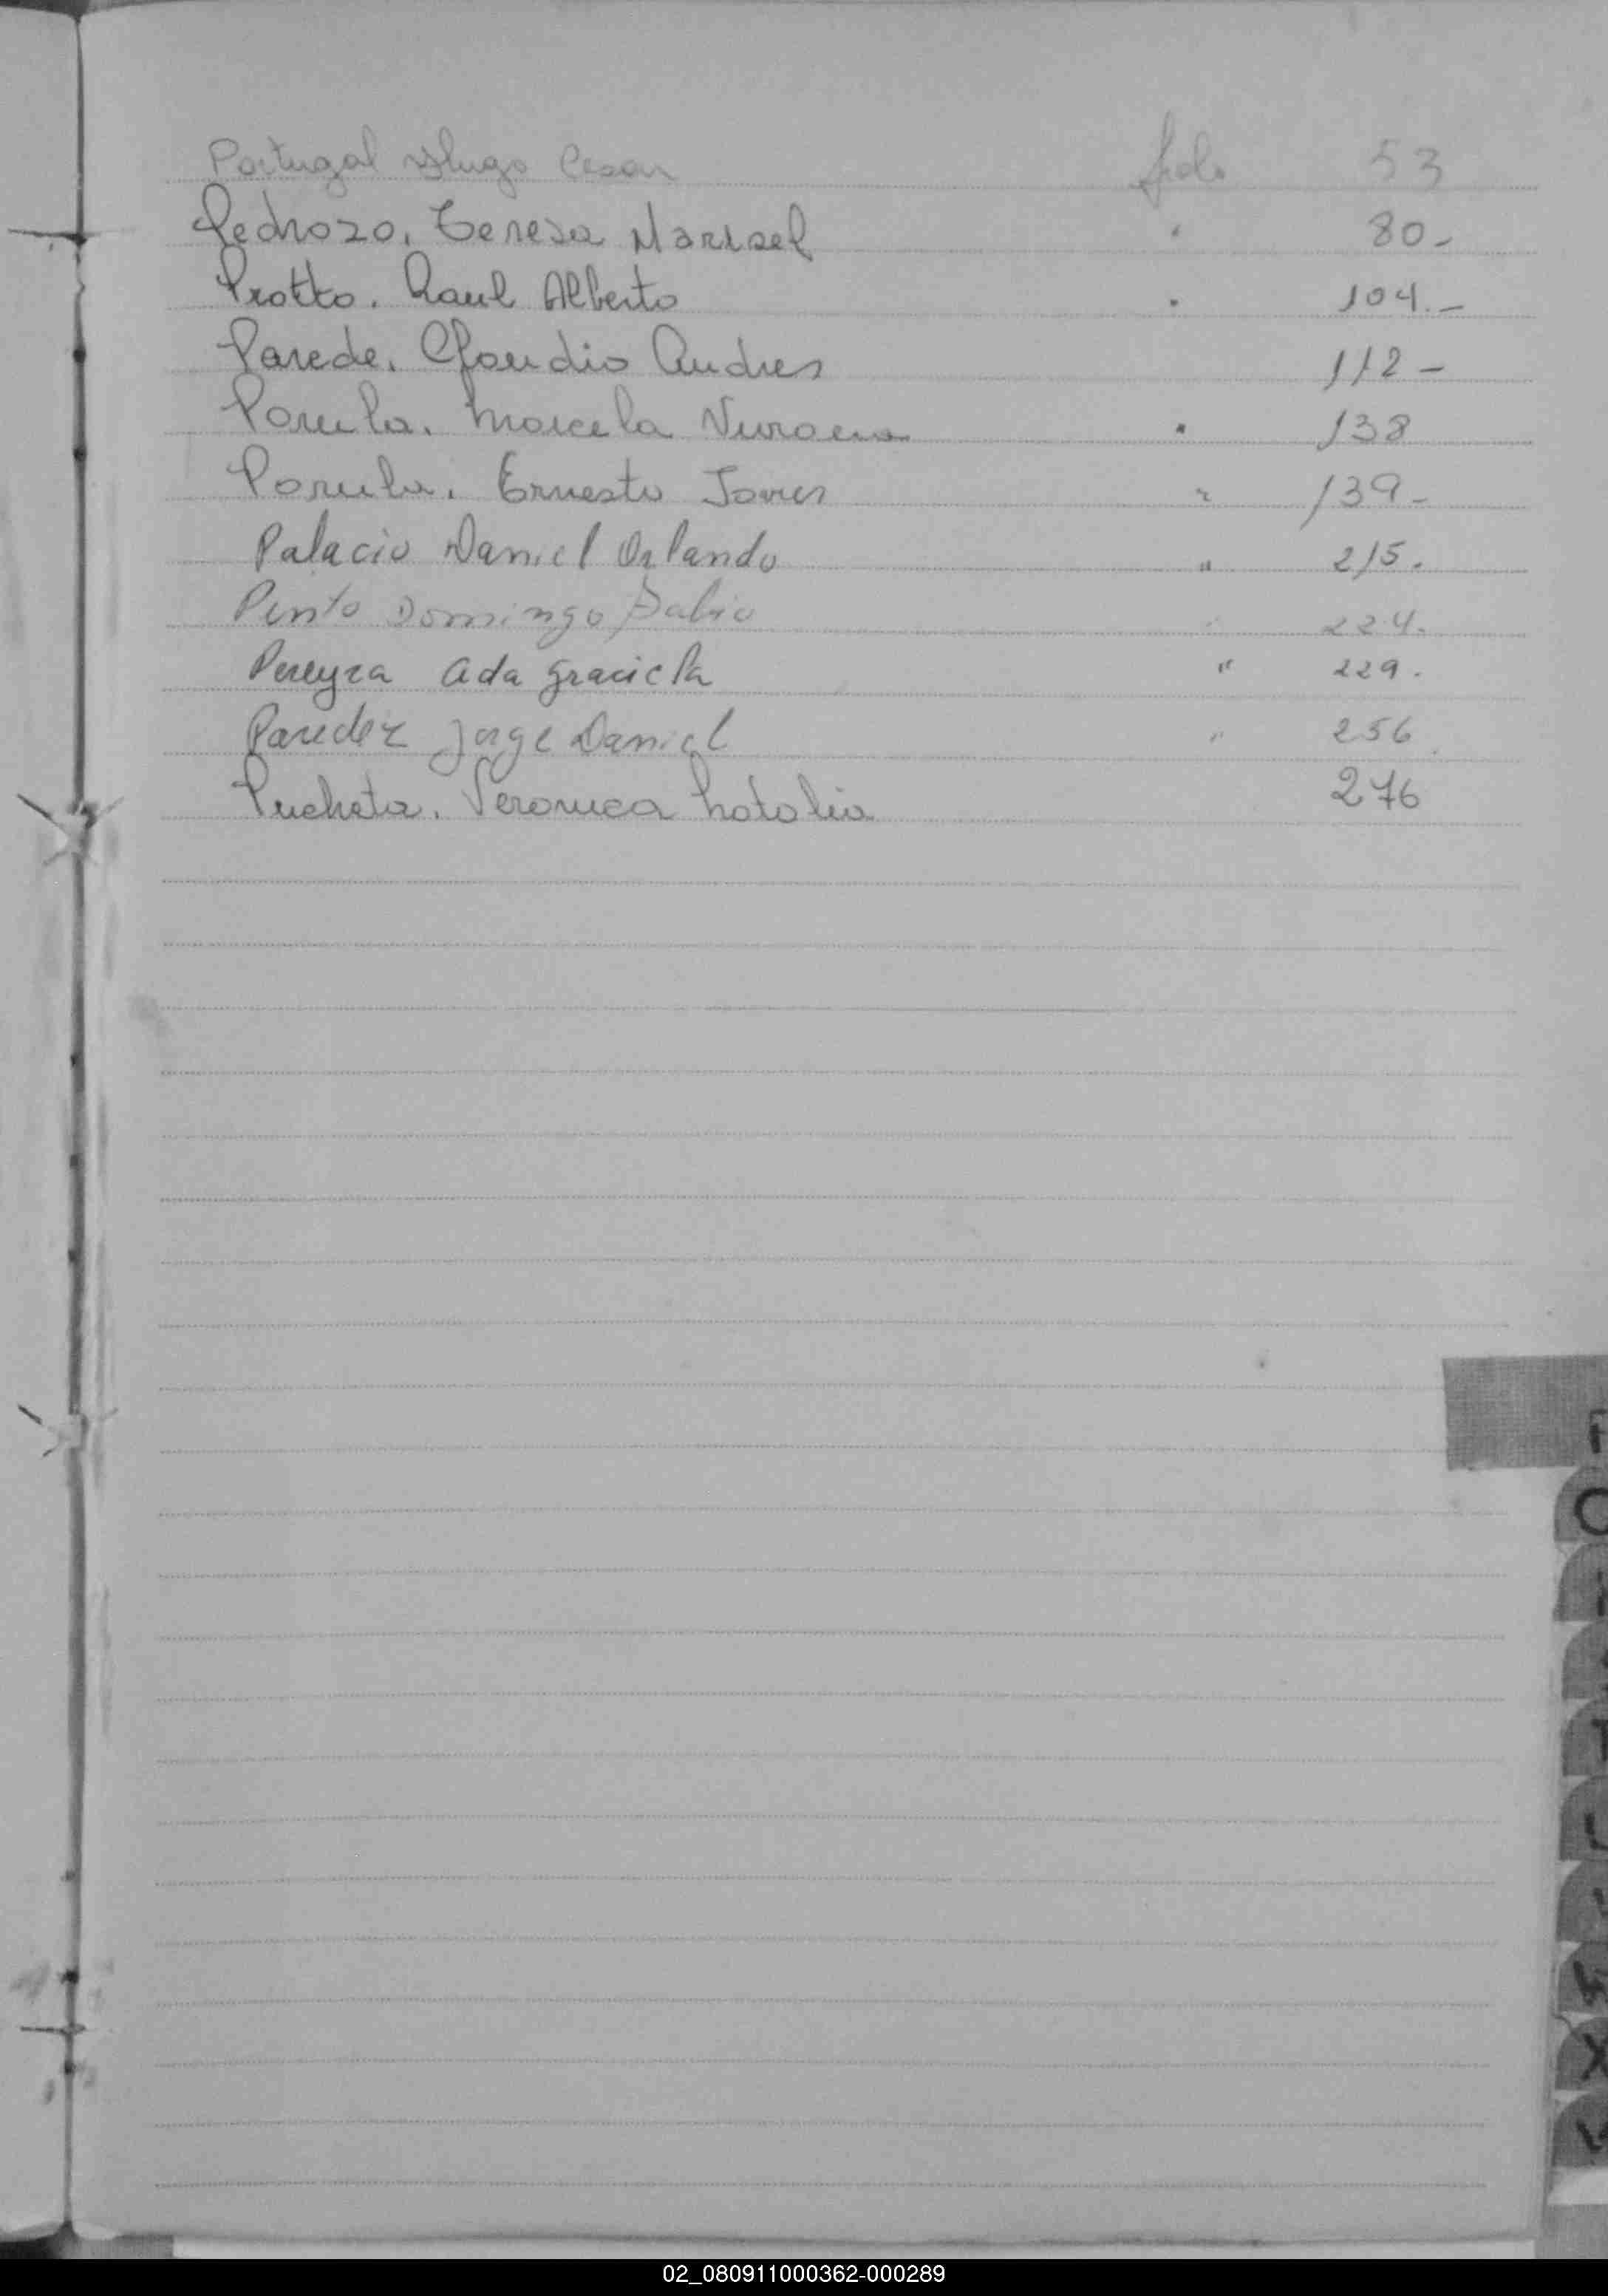 Portugal Hugo Cesar folio 53
Pedrozo, Teresa Marisel " 80-
Protto. Raul Alberto " 104.-
Parede. Claudio Andres 112-
Marcela " 138
Ernesto Javier " 139-
Palacio Daniel Orlando " 215.
Pinto Domingo Fabio " 224.
Pereyra Ada Graciela " 229.
Paredez Jorge Daniel " 256
Pucheta. Veronica Natalia 276
P
Q
T
U
X
02_080911000362-000289